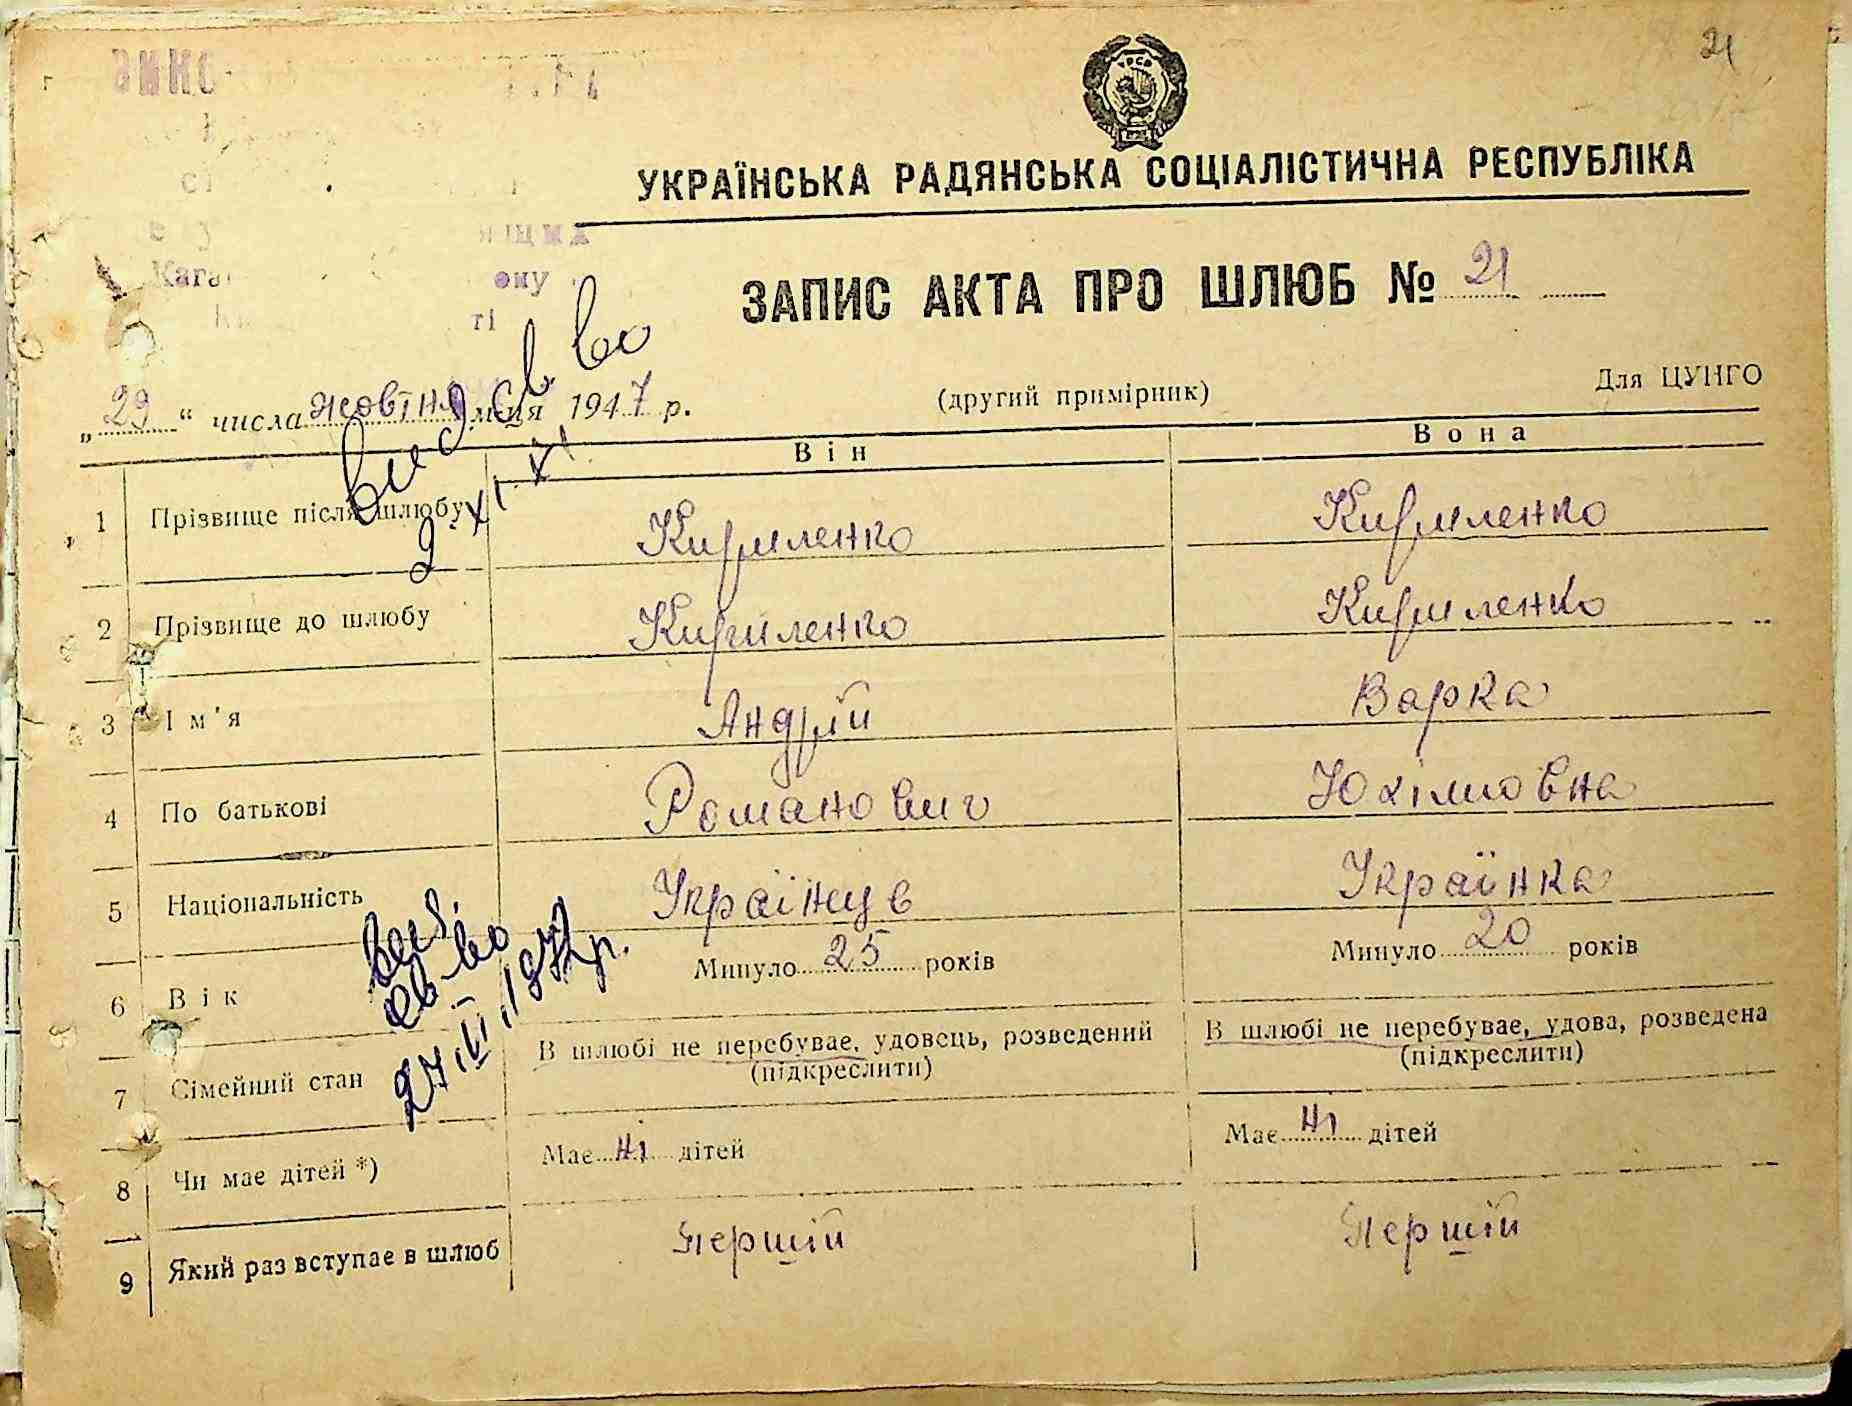 21
УКРАЇНСЬКА РАДЯНСЬКА СОЦІАЛІСТИЧНА РЕСПУБЛІКА
ЗАПИС АКТА ПРО ШЛЮБ № 21
„29“ числа жовтня м-ця 1947 р. (другий примірник) Для ЦУНГО
вид. св. во
Він Вона
1 Прізвище після шлюбу Кириленко Кириленко
2 Прізвище до шлюбу Кириленко Кириленко
3 Ім'я Андрій Варка
4 По батькові Романович Юхімовна
5 Національність Українец Українка
6 Вік Минуло 25 років Минуло 20 років
7 Сімейний стан В шлюбі не перебуває, удовець, розведений (підкреслити) В шлюбі не перебуває, удова, розведена (підкреслити)
8 Чи має дітей *) Має ні дітей Має ні дітей
9 Який раз вступає в шлюб Першій Першій